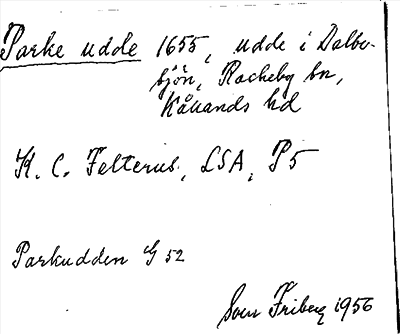 Parke udde 1655, udde i Dalbo-
sjön, Rackeby sn,
Kållands hd
K. C. Felterus, LSA, P5
Parkudden G 52
Sven Friberg 1956